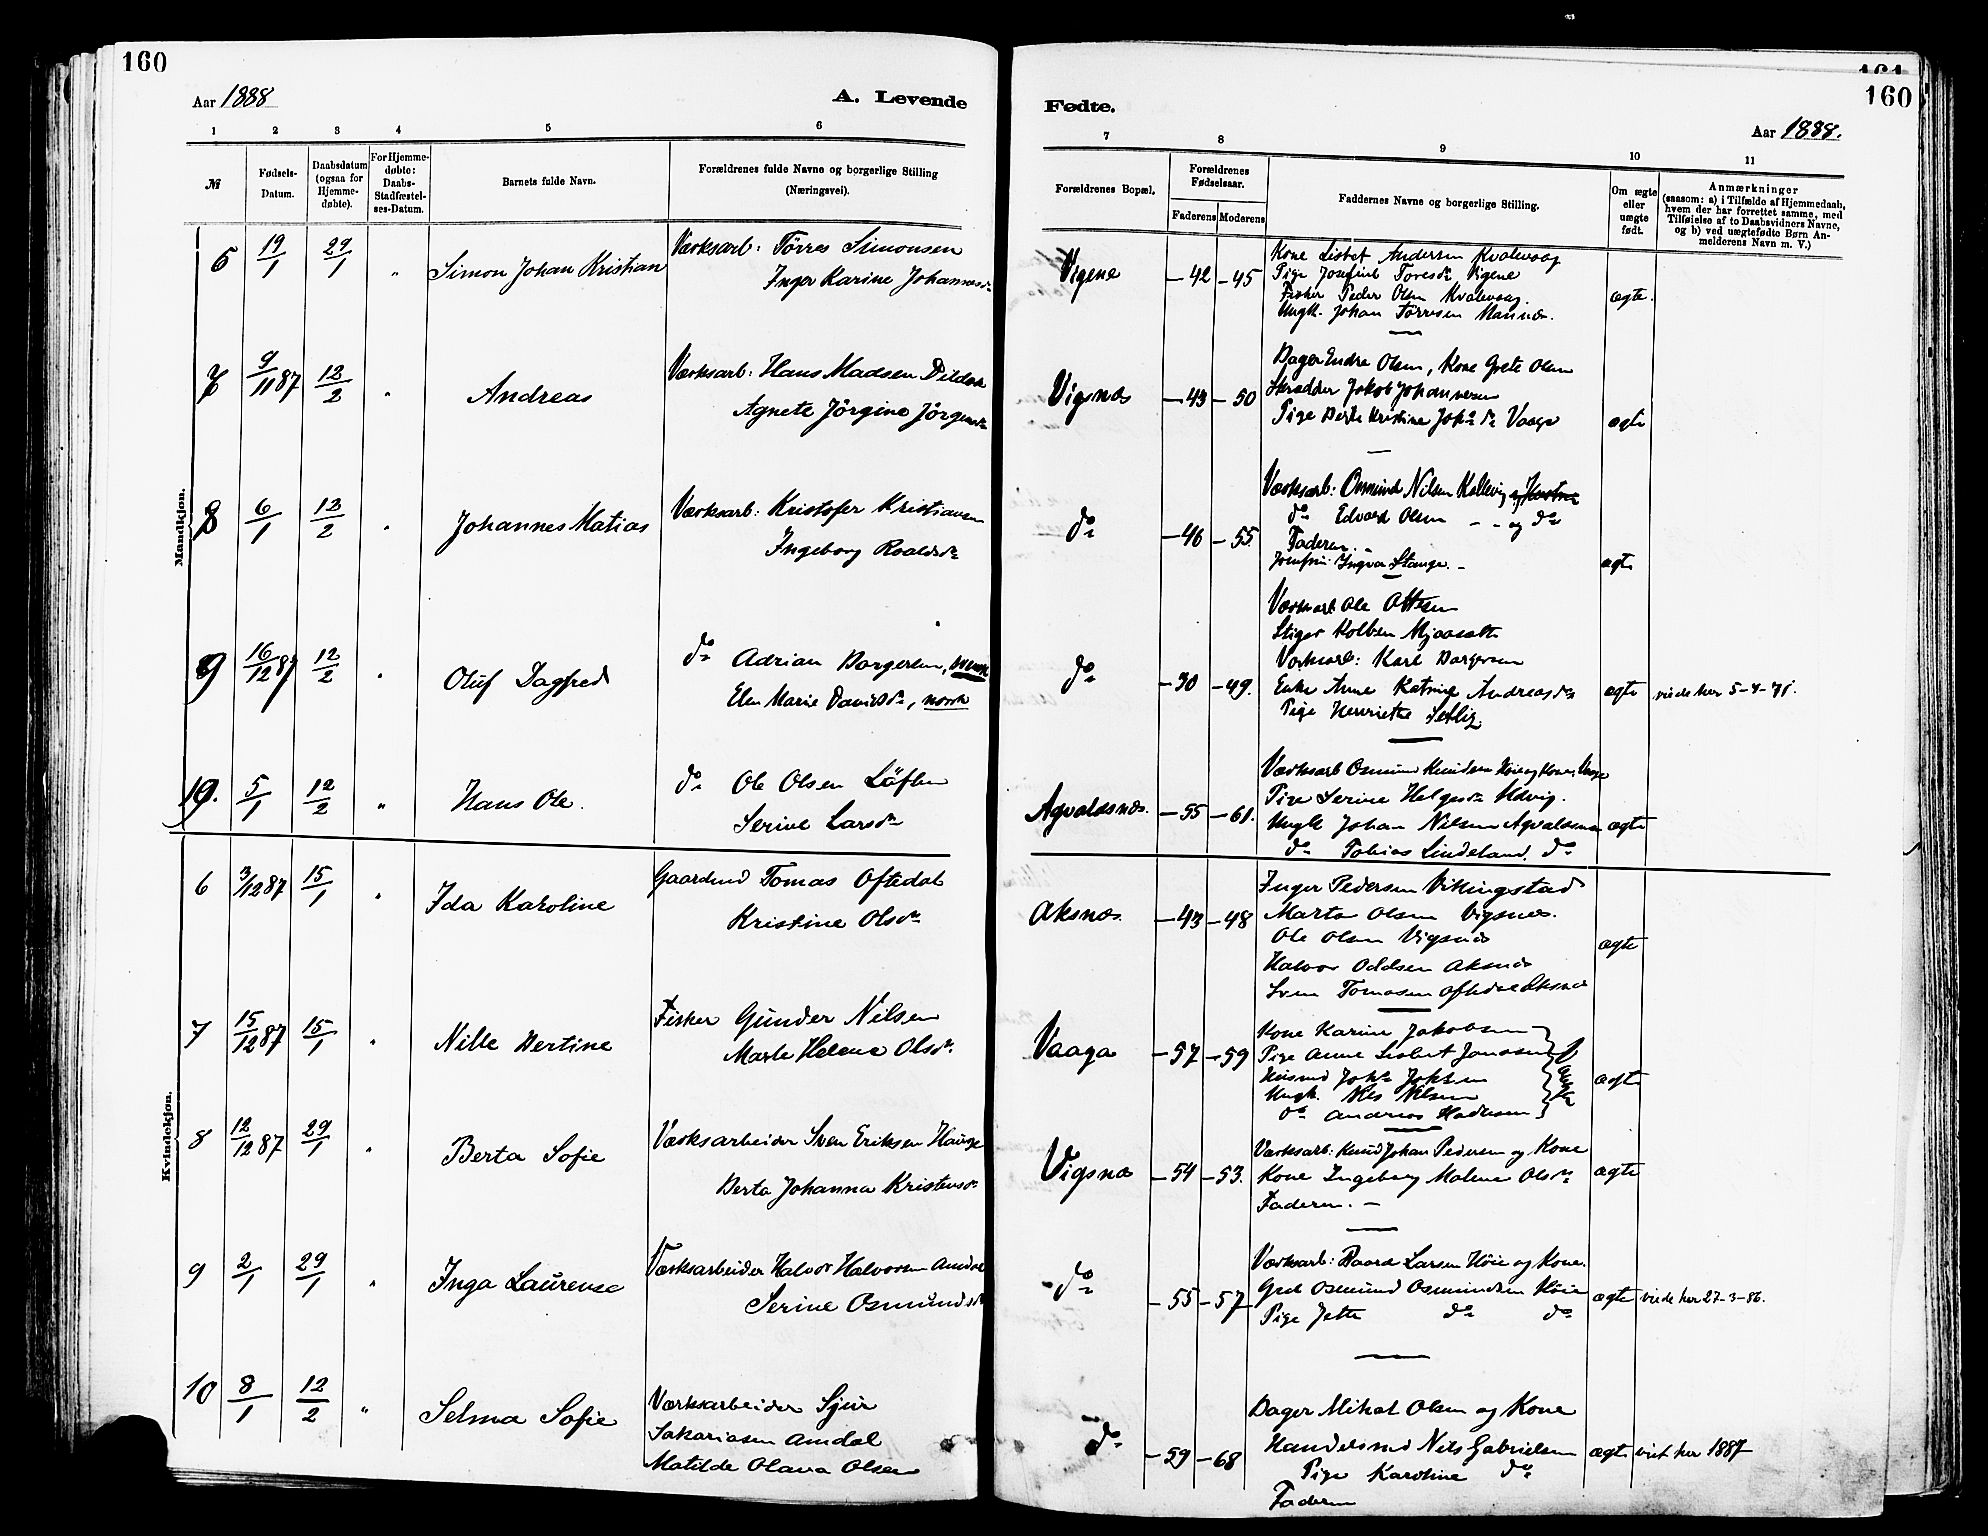 160
Aar 1888
A. Levende
1 2 3 4 5 6
№
Fødsels-Datum.
Daabsdatum (ogsaa for Hjemme-døbte).
For Hjemme-døbte: Daabs-Stadfæstel-ses-Datum.
Barnets fulde Navn.
Forældrenes fulde Navne og borgerlige Stilling (Næringsvei).
Mandkjøn.
6 19/1 29/1 " Simon Johan Kristian
Værksarb: Tørres Simonsen
Inger Karine Johannesdr
7 9/11 87 12/2 " Andreas
Værksarb: Hans Madsen
Agnete Jörgine Jörgensdr
8 6/1 12/2 " Johannes Matias
Værksarb: Kristofer Kristiansen
Ingeborg Roaldsdr
9 16/12 87 12/2 " Oluf Dagfred
do Adrian Borgersen, svensk
Elen Marie Davidsdr, norsk
10. 5/1 12/2 " Hans Ole.
do Ole Olsen Löflen
Serine Larsdr
Kvindekjøn.
6 3/12 87 15/1 " Ida Karoline
Gaardmd Tomas Oftedal
Kristine Olsdr
7 15/12 87 15/1 " Nille Bertine
Fisker Gunder Nilsen
Marte Helene Olsdr.
8 12/12 87 29/1 " Berta Sofie
Værksarbeider Sven Eriksen Hauge
Berta Johanna Kristensdr
9 2/1 29/1 " Inga Laurense
Værksarbeider Halvor Halvorsen Amdal
Serine Osmundsdr
10 8/1 12/2 " Selma Sofie
Værksarbeider Sjur
Sakariasen Amdal
Matilde Olava Olsen
161
160
Fødte.
Aar 1888.
7 8 9 10 11
Forældrenes Bopæl.
Forældrenes Fødselsaar.
Faderens Moderens
Faddernes Navne og borgerlige Stilling.
Om ægte eller uægte født.
Anmærkninger
(saasom: a) i Tilfælde af Hjemmedaab,
hvem der har forrettet samme, med
Tilføielse af to Daabsvidners Navne,
og b) ved uægtefødte Børn An-
melderens Navn m. V.)
Vigene -42 -45
Kone Lisbet Andersen Kvalevaag
Pige Josefine Toresdr Vigene
Fisker Peder Olsen Kvalevaag.
Ungk. Johan Tørresen
ægte.
Vigsnæs -43 -50
Bager Endre Olsen, Kone Grete Olsen
Skrædder Jakob Johannesen
Pige Berte Kristine Johs dr Vaage
ægte
do -46 -55
Værksarb: Osmund Nilsen Kallevig og Hustru
do Edvard Olsen - - og do
Faderen.
Ingvar Stange. -
ægte
do -30 -49.
Værksarb Ole Ottesen
Stiger Kolben
Værksarb: Karl Borgersen
Enke Anne Katrine Andreasdr
Pige Henriette
ægte viede her 5-4-71.
Agvaldsnæs. -55 -61.
Værksarb Osmund Knudsen Høie og Kone,
Pige Serine Helgesdr
Ungk Johan Nilsen Agvaldsnæs
do Tobias Lindeland. do
ægte
Aksnæs. -43 -48
Inger Pedersen Vikingstad
Marta Olsen Vigsnæs.
Ole Olsen Vigsnæs
Halvor Oddsen Aksnæs
Sven Tomasen Oftedal Aksnæs
ægte
Vaaga -57 -59
Kone Karine Jakobsen
Pige Anne Lisbet Jonassen
Husmd Johs Johsen
Ungk. Nils Nilsen
do Andreas
ægte
Vigsnæs -54 -53.
Værksarb: Knud Johan Pedersen og Kone
Kone Ingeborg Malene Olsdr
Faderen. -
ægte
do -55 -57
Værksarb: Baard Larsen Höie og Kone.
Osmund Osmundsen Höie
Pige Jette do do
ægte viede her 27-3-86.
do -59 -68
Bager Mikal Olsen og Kone
Handelsmd Nils Gabrielsen
Pige Karoline do
Faderen
ægte viet her 1887